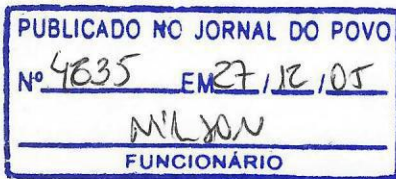 PUBLICADO NO JORNAL DO POVO
Nº 4835 EM 27/12/05
NILSON
FUNCIONÁRIO